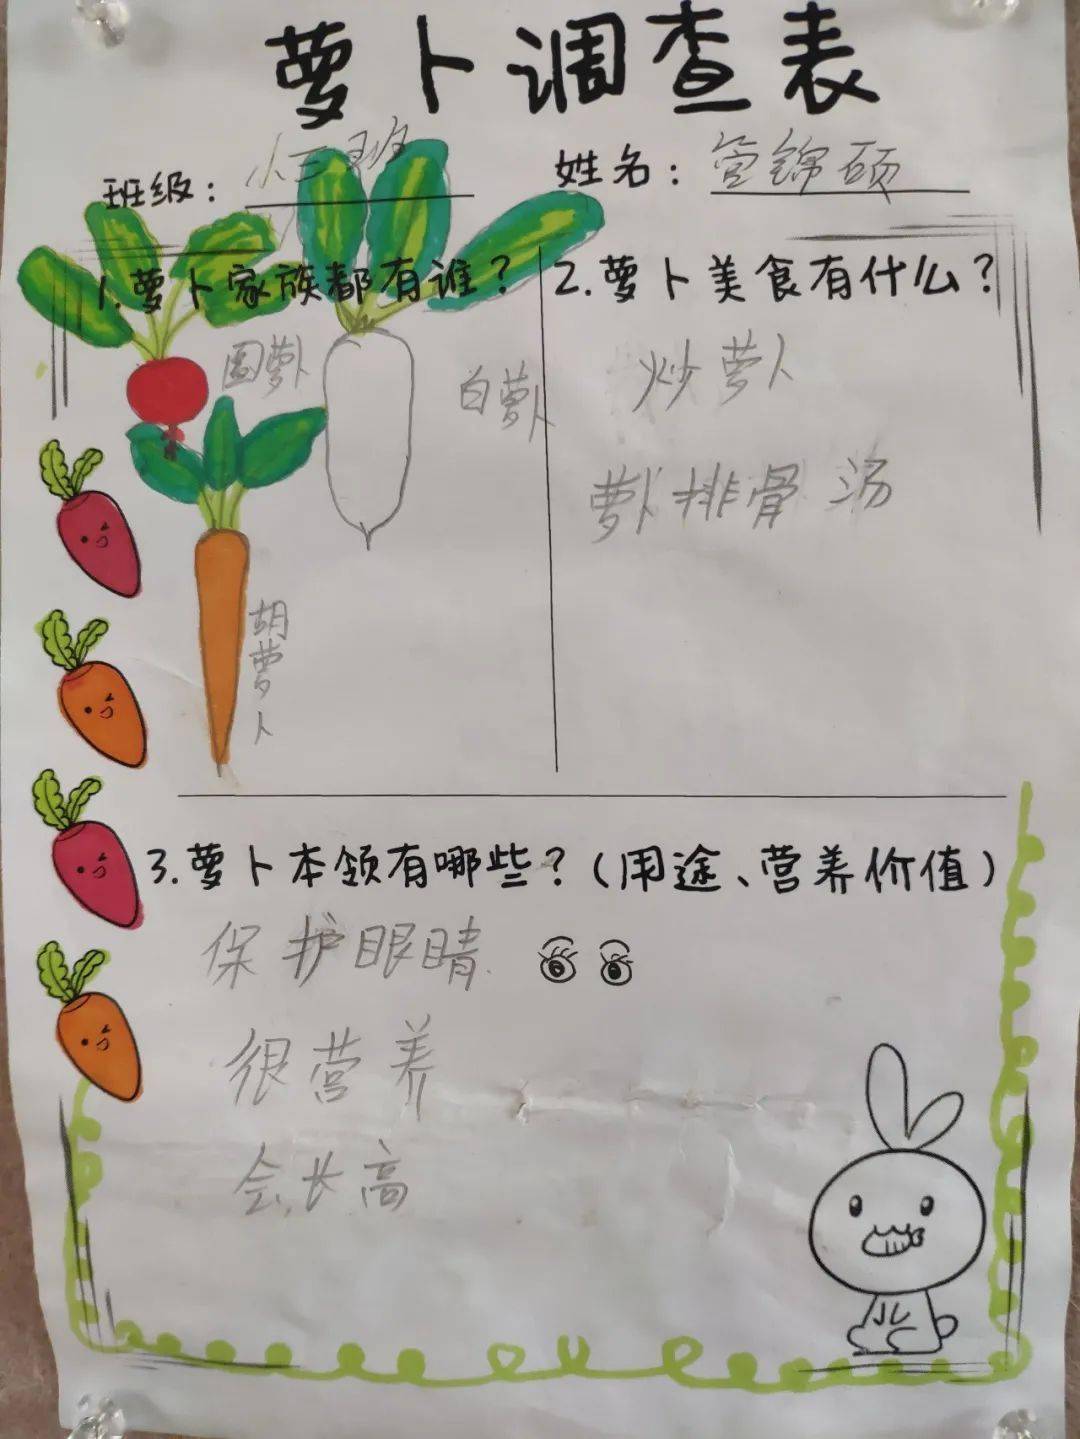 萝卜调查表
班级：小三班 姓名：管锦硕
1.萝卜家族都有谁？
圆萝卜
白萝卜
胡萝卜
2.萝卜美食有什么？
炒萝卜
萝卜排骨汤
3.萝卜本领有哪些？（用途、营养价值）
保护眼睛
很营养
会长高